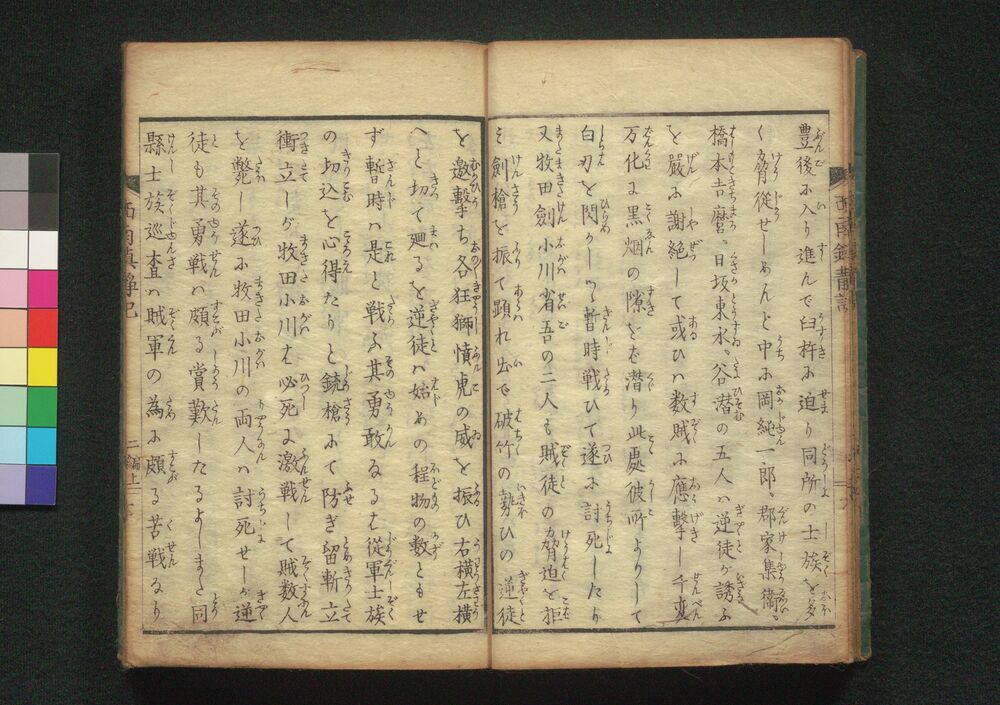 豊後に入り進んで臼杵に迫り同所の士族を多
く脅従せしめんと中に岡純一郎、郡家集衛、
橋本吉麿、日坂東水、谷潜の五人ハ逆徒が誘ふ
を嚴に謝絶して或ひハ数賊に應撃し千変
万化に黒烟の隙をば潜り此處彼所よりして
白刃を閃かしつゝ暫時戦ひて遂に討死したり
又牧田劍小川省吾の二人も賊徒の脅迫を拒
み劍槍を振て顕れ出で破竹の勢ひの逆徒
を邀撃ち各狂獅憤虎の威を振ひ右横左横
へと切て廻るを逆徒ハ始めの程物の数ともせ
ず暫時ハ是と戦ふ其勇敢なるは従軍士族
の切込を心得たりと銃槍にて防ぎ留斬立
衝立しが牧田小川は必死に激戦して賊数人
を斃し遂に牧田小川の両人ハ討死せしが逆
徒も其勇戦ハ頗る賞歎したるよしまた同
縣士族巡査ハ賊軍の為に頗る苦戦なり
西南鎮静記
二編上